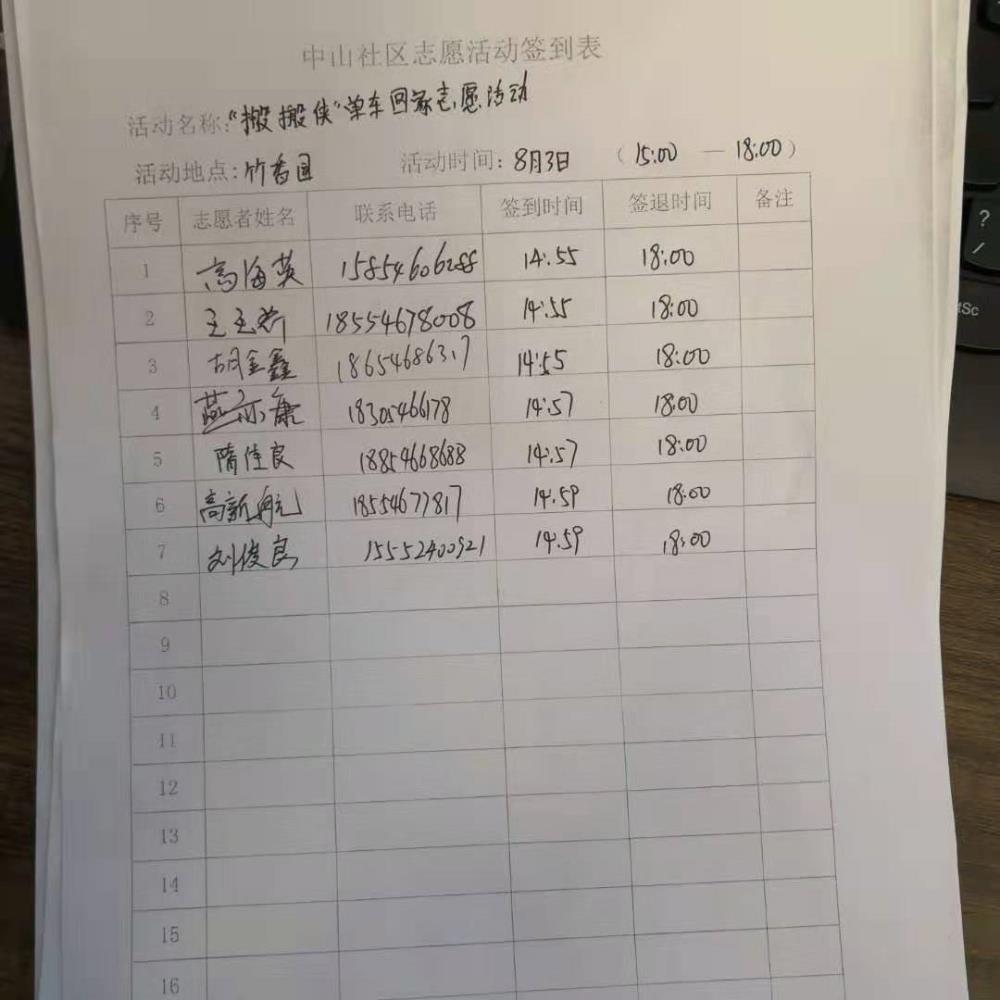 中山社区志愿活动签到表
活动名称:"搬搬侠"单车回家志愿活动
活动地点:竹香园 活动时间:8月3日 (15:00 — 18:00)
序号 志愿者姓名 联系电话 签到时间 签退时间 备注
1 高海英 15854606288 14:55 18:00
2 王玉新 18554678008 14:55 18:00
3 胡金鑫 18654686317 14:55 18:00
4 燕尔康 18305466178 14:57 18:00
5 隋佳良 18854668688 14:57 18:00
6 高新航 18554677817 14:59 18:00
7 刘俊良 15552400921 14:59 18:00
8
9
10
11
12
13
14
15
16
?
/
tSc